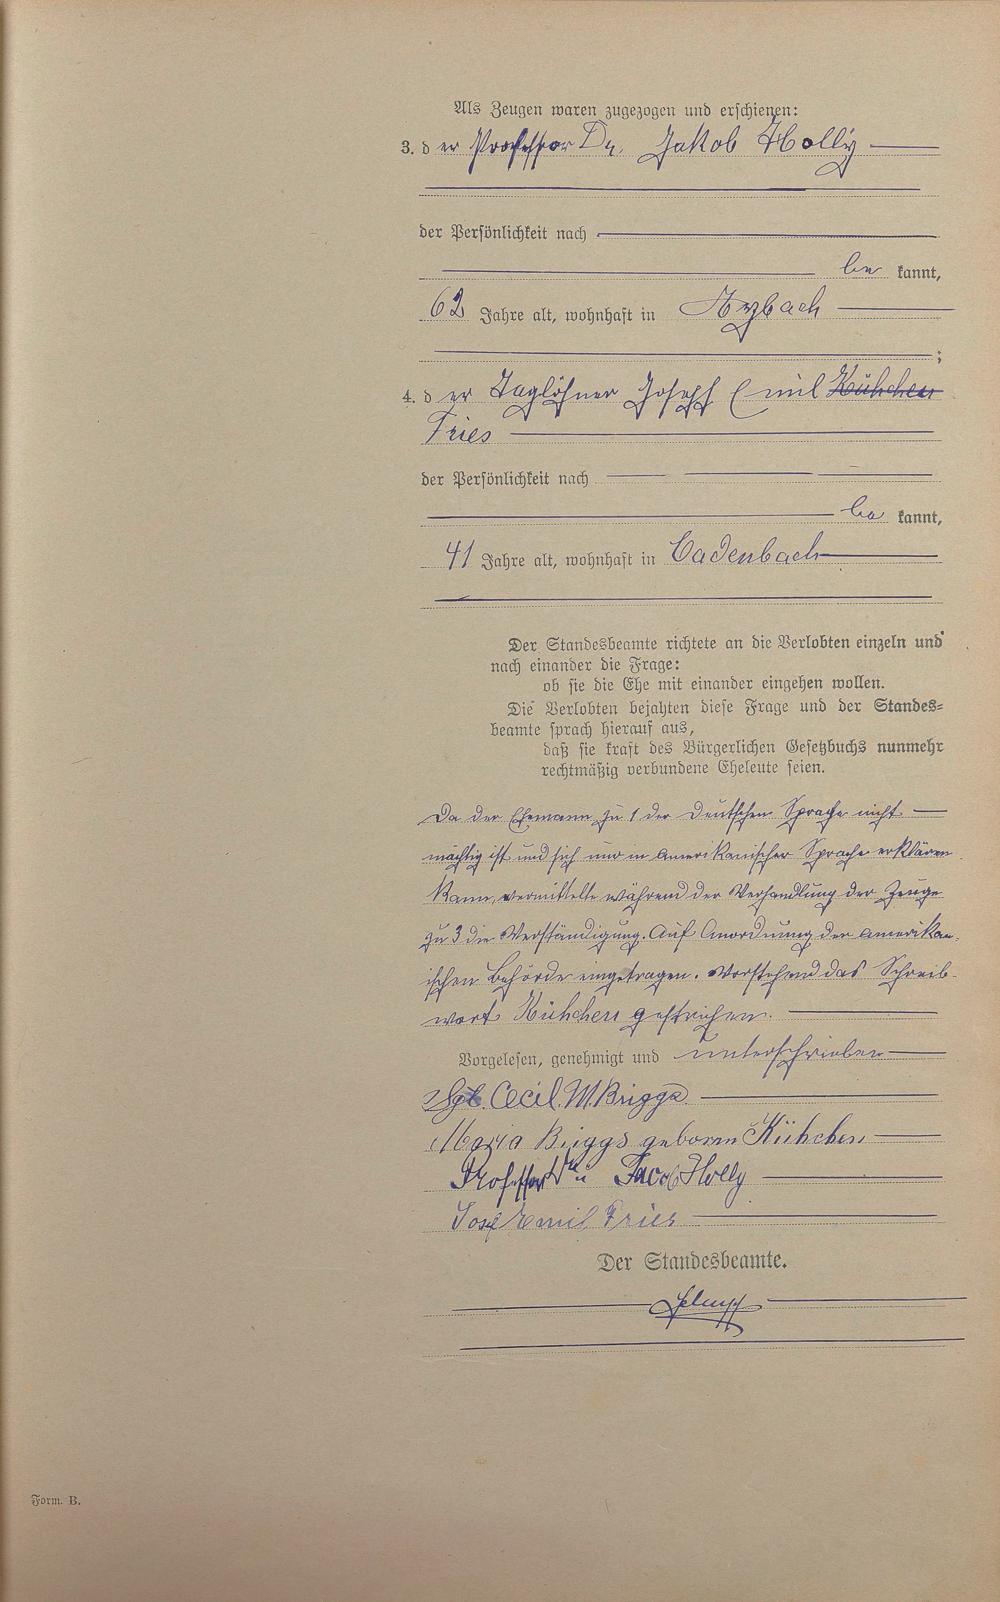 Als Zeugen waren zugezogen und erschienen:
3. der Professor Dr. Jakob Holly
der Persönlichkeit nach
be kannt,
62 Jahre alt, wohnhaft in Arzbach
;
4. der Taglöhner Joseph Emil Kühchen
Fries
der Persönlichkeit nach
be kannt,
41 Jahre alt, wohnhaft in Cadenbach
Der Standesbeamte richtete an die Verlobten einzeln und
nach einander die Frage:
ob sie die Ehe mit einander eingehen wollen.
Die Verlobten bejahten diese Frage und der Standes-
beamte sprach hierauf aus,
daß sie kraft des Bürgerlichen Gesetzbuchs nunmehr
rechtmäßig verbundene Eheleute seien.
Da der Ehemann zu 1 der deutschen Sprache nicht
mächtig ist und sich nur in amerikanischer Sprache erklären
kann, vermittelte während der Verhandlung der Zeuge
zu 3 die Verständigung. Auf Anordnung der amerikan-
ischen Behörde eingetragen. Vorstehend das Schreib-
wort Kühchen gestrichen.
Vorgelesen, genehmigt und unterschrieben
Sgt. Cecil. M. Briggs
Maria Briggs geborene Kühchen
Professor Dr. Jacob Holly
Josef Emil Fries
Der Standesbeamte.
Form. B.